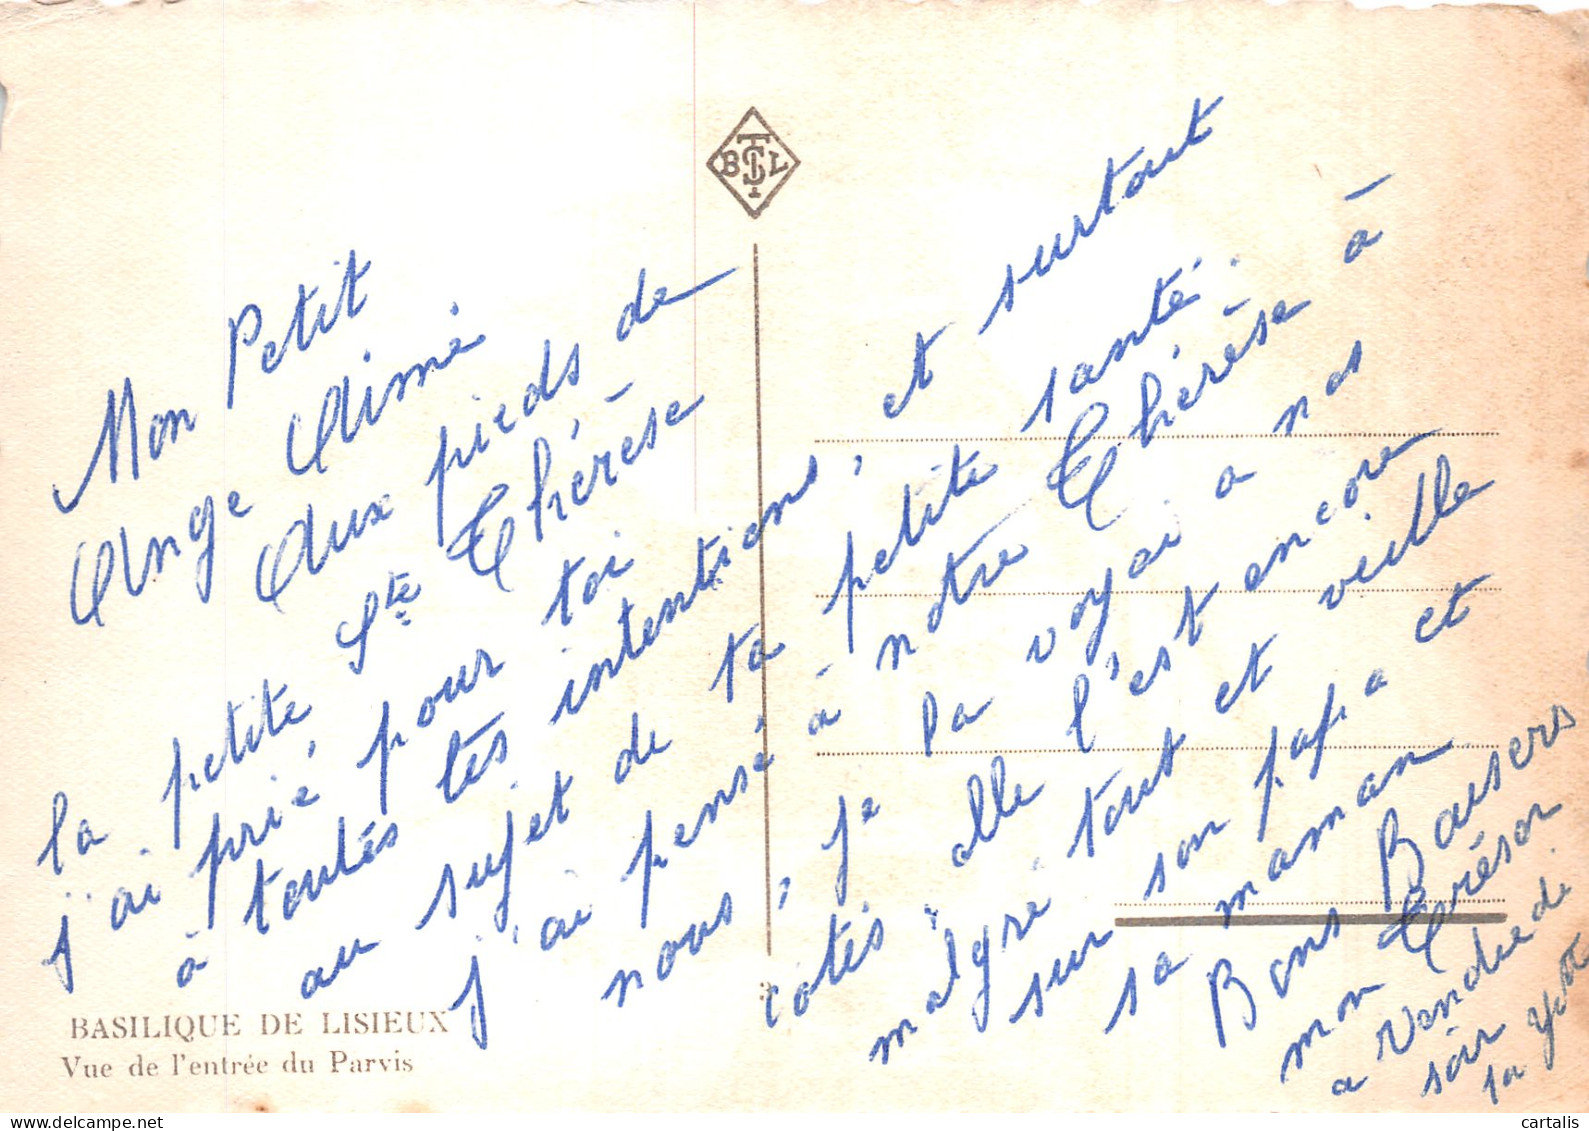 BTSL
Mon Petit
Ange Aimé
Aux pieds de
la petite Ste Thérèse
j'ai prié pour toi
à toutés tes intentions, et surtout
au sujet de ta petite santé.
j'ai pensé à notre Thérèse à
nous, je la voyai a nos
cotés elle l'est encore
malgré tout et veille
sur son papa et
sa maman
Bons Baisers
mon Trésor
a Vendredi
soir
ta
BASILIQUE DE LISIEUX
Vue de l'entrée du Parvis
cartalis